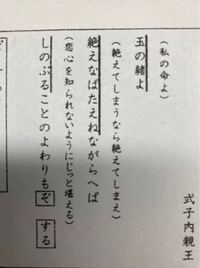 式子内親王
（私の命よ）
玉の緒よ
（絶えてしまうなら絶えてしまえ）
絶えなばたえねながらへば
（恋心を知られないようにじっと堪える）
しのぶることのよわりもぞする